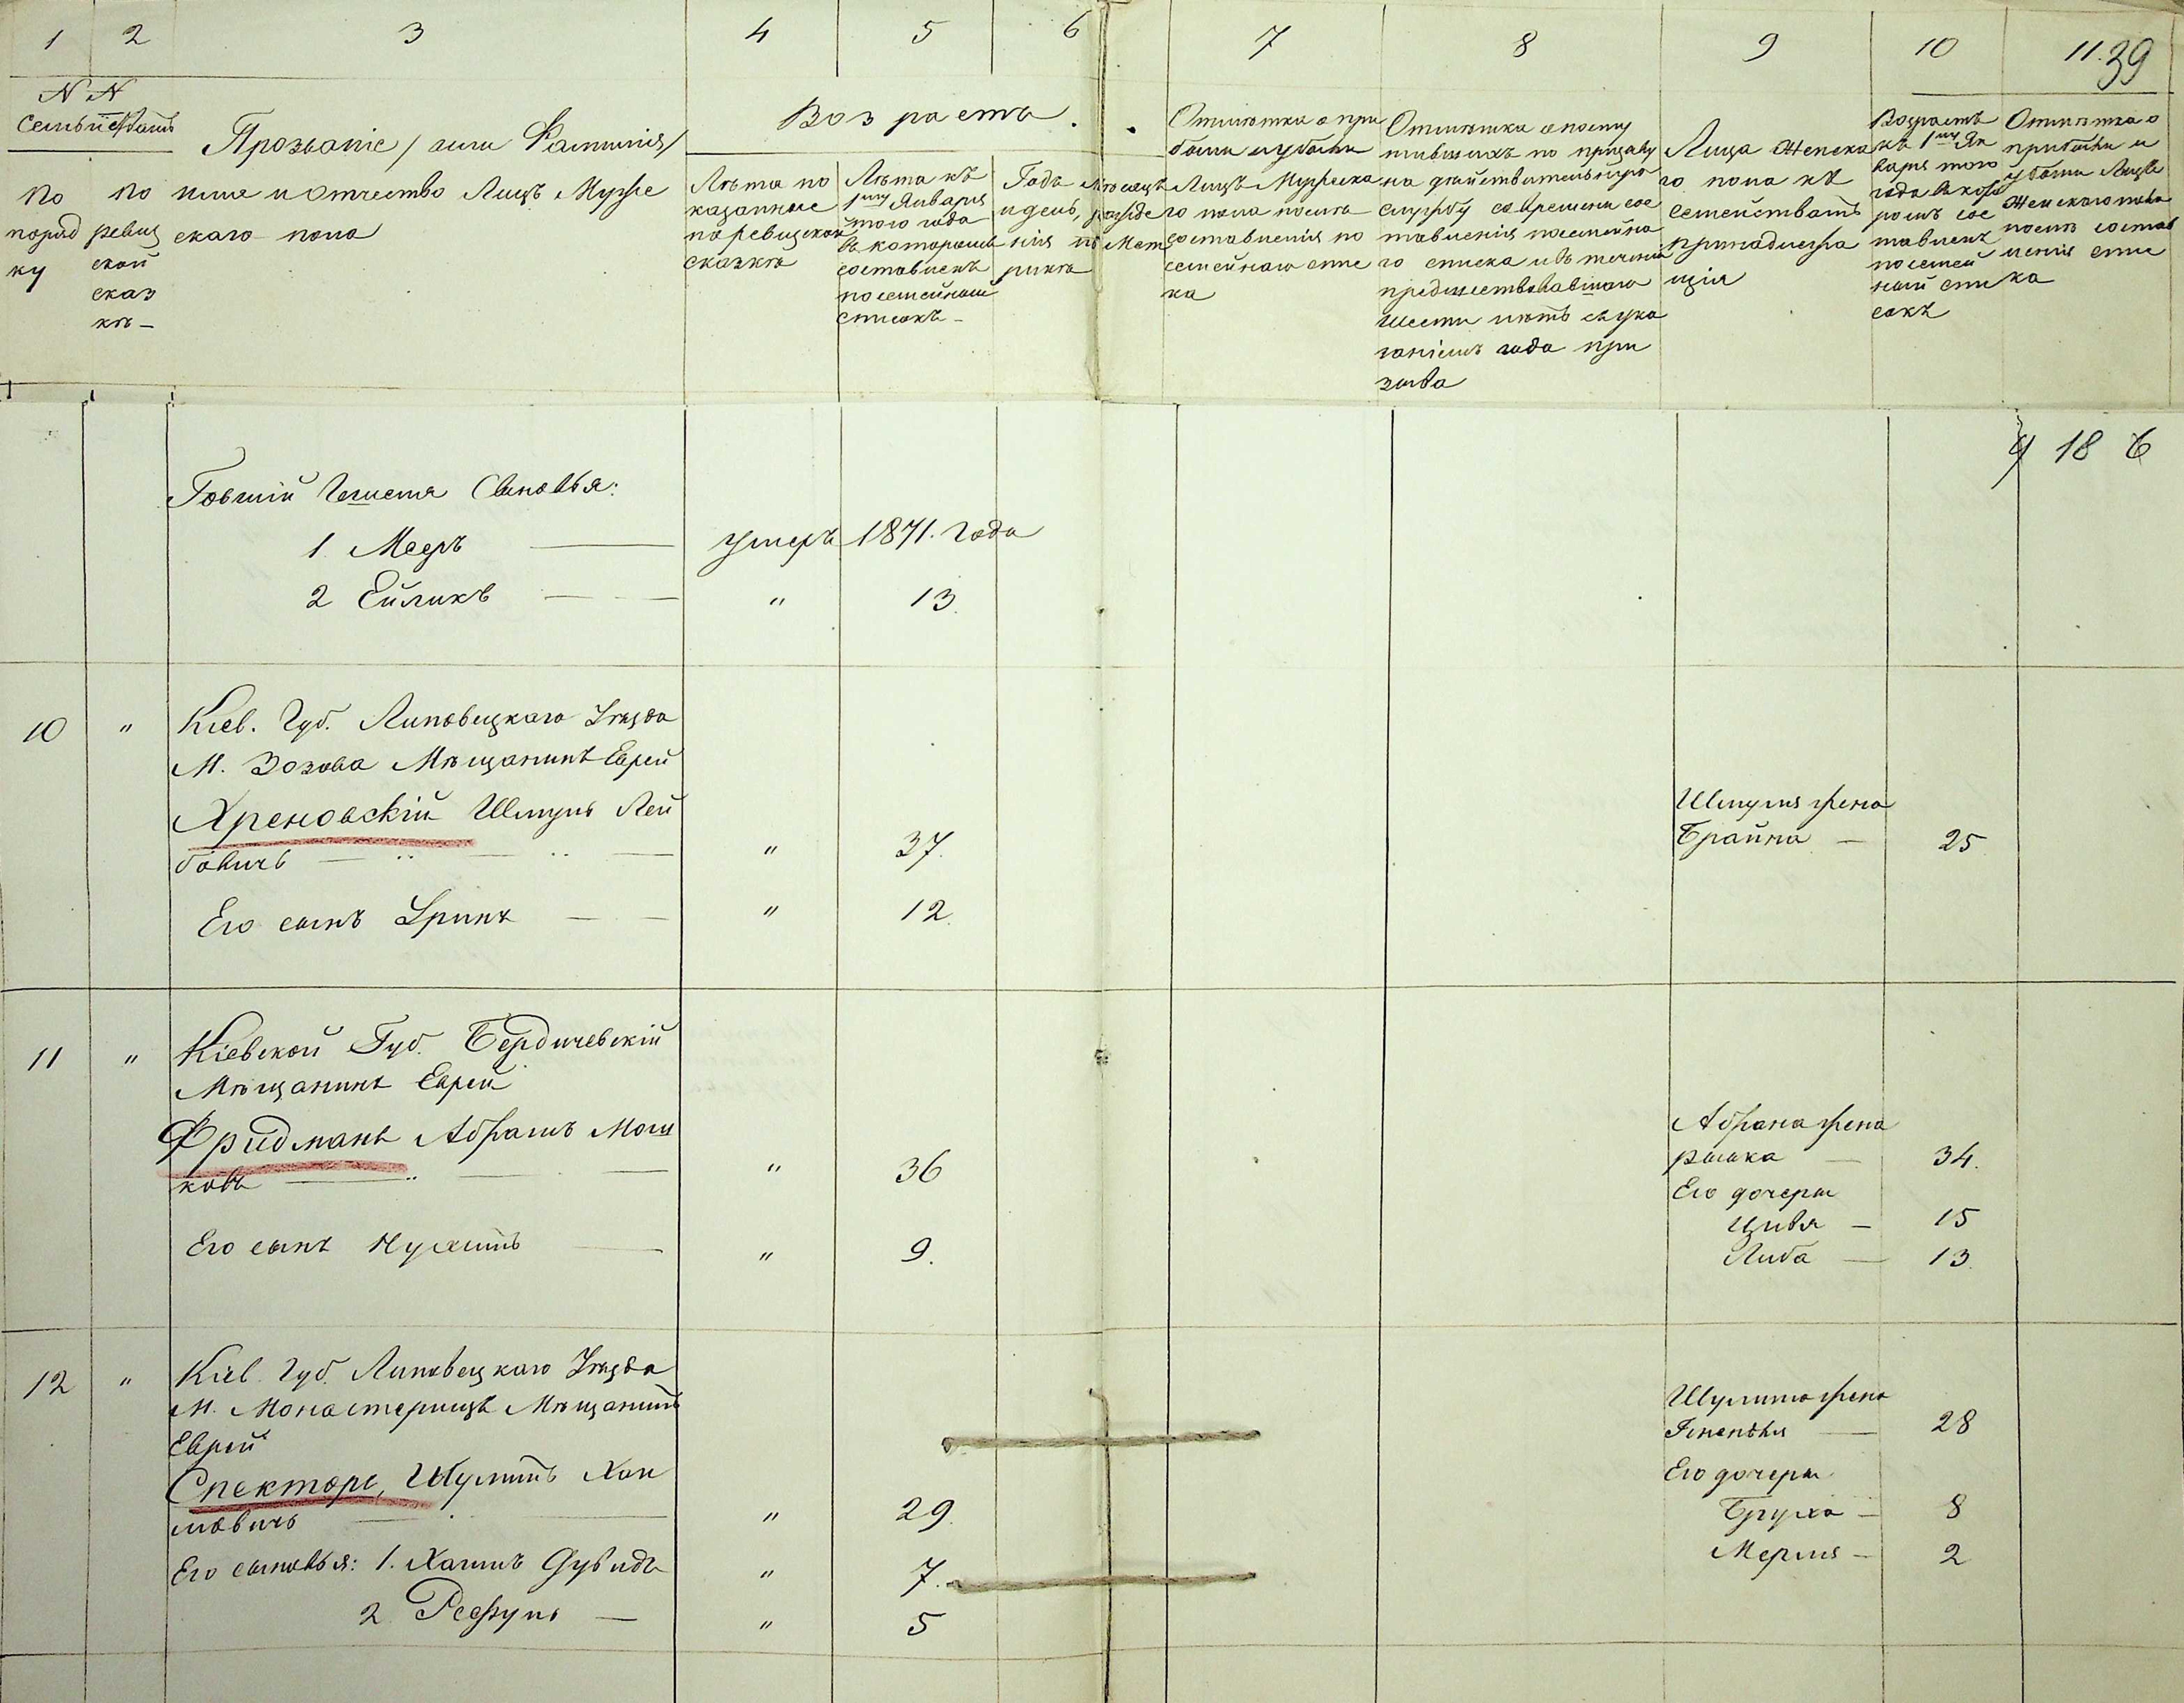 1 2 3 4 5 6 7 8 9 10 11. 39
N N
Семействъ
По
поряд
ку
по
ревиз
ской
сказ
кѣ
Прозваніе / или Фамилія /
имя и отчество Лицъ Муже
скаго пола
Возрастъ.
Лѣта по
казанные
по ревизской
сказкѣ
Лѣта къ
1му Января
того года
въ которомъ
составленъ
посемейный
списокъ
Годъ мѣсяцъ
и день, рожде
нія по Мет
рикѣ
Отмѣтка о при
были и убыли
Лицъ Мужска
го пола послѣ
составленія по
семейнаго спис
ка
Отмѣтка о посту
пившихъ по призыву
на дѣйствительную
службу со времени сос
тавленія посемейна
го списка и въ теченіи
предшествовавшаго
шести лѣтъ съ ука
заніемъ года при
зыва
Лица Женска
го пола къ
семействамъ
принадлежа
щія
Возрастъ
къ 1му Ян
варя того
года въ кото
ромъ сос
тавленъ
посемей
ный спи
сокъ
Отмѣтка о
прибыли и
убыли Лицъ
Женскаго пола
послѣ состав
ленія спис
ка
4 18 6
Сыновья:
1. Мееръ — умеръ 1871. года
2 Ейликъ — " 13.
10 " Кіев. Губ. Липовецкаго Уѣзда
М. Зозова Мѣщанинъ Еврей
Хреновскій Шмуль Лей
бовичъ — " 37.
Шмуля жена
Брайна — 25
Его сынъ Сруль — " 12.
11 " Кіевской Губ. Бердичевскій
Мѣщанинъ Еврей
Фридманъ Абрамъ Мош
ковъ — " 36
Абрама жена
Рышка — 34.
Его дочери
Цивя — 15
Либа — 13.
Его сынъ Нухимъ — " 9.
12 " Кіев. Губ. Липовецкаго Уѣзда
М. Монастырищъ Мѣщанинъ
Еврей
Спекторъ, Шулимъ Хаи
мовичъ — " 29.
Шулима жена
28
Его дочери
Бруха — 8
Мерля — 2
Его сыновья: 1. Хаимъ Дувидъ " 7.
2 — " 5